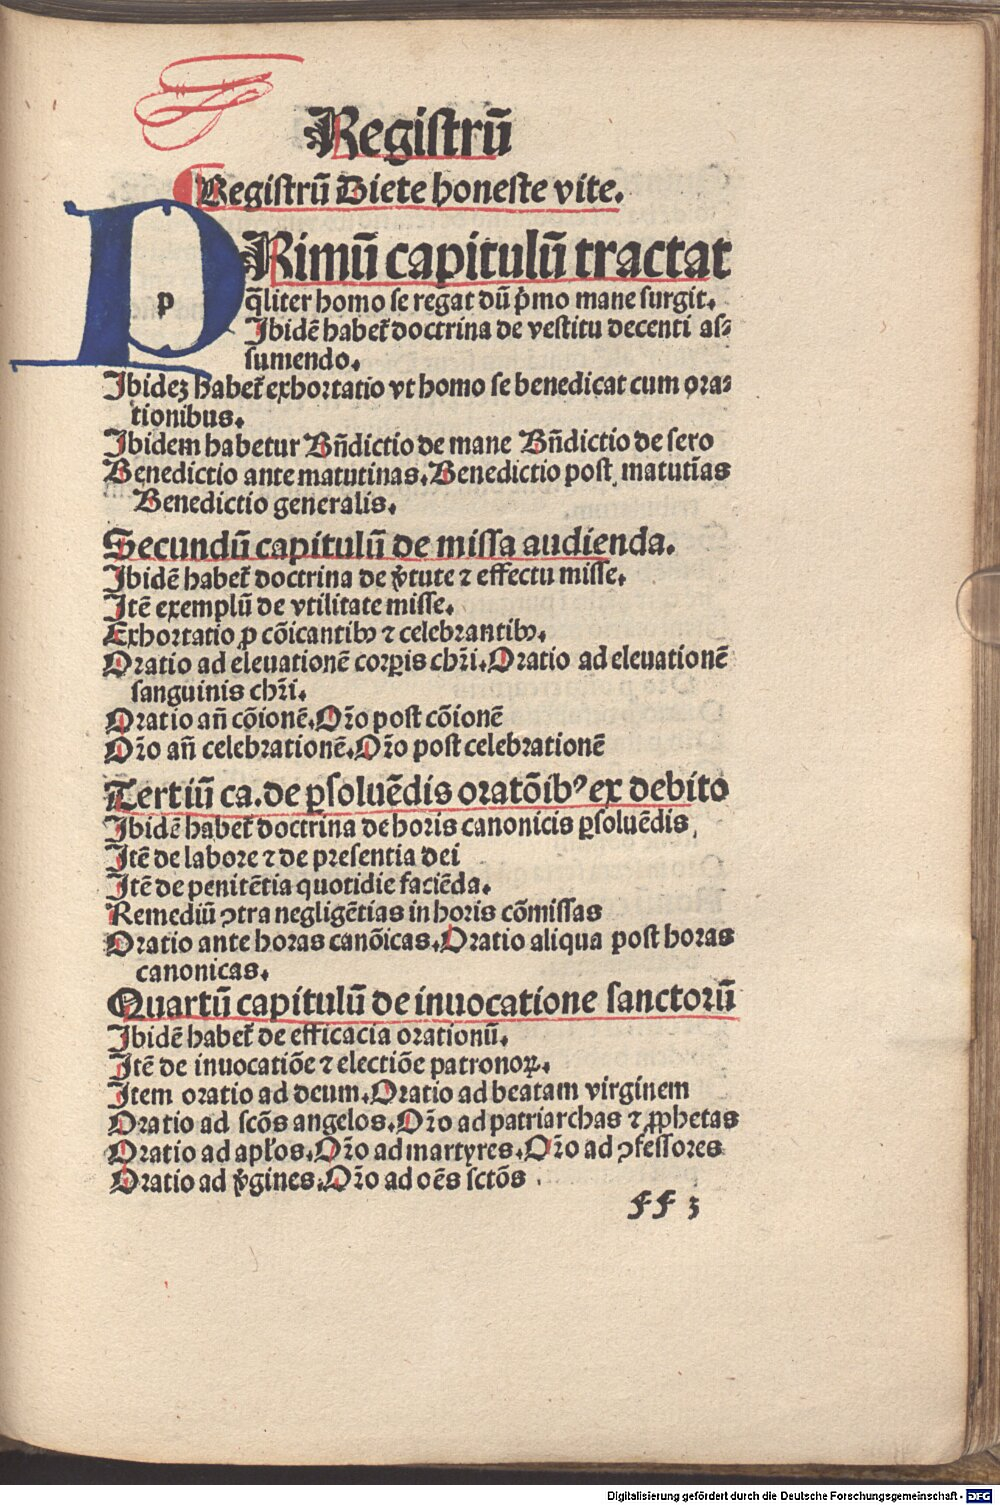 Registrū
Registrū Diete honeste vite.
PRimū capitulū tractat
q̄liter homo se regat dū p̄mo mane surgit.
Ibidē habet̄ doctrina de vestitu decenti as⸗
sumendo.
Ibidez habet̄ exhortatio vt homo se benedicat cum ora⸗
tionibus.
Ibidem habetur Bn̄dictio de mane Bn̄dictio de sero
Benedictio ante matutinas. Benedictio post matutīas
Benedictio generalis.
Secundū capitulū de missa audienda.
Ibidē habet̄ doctrina de v̄tute ⁊ effectu misse.
Itē exemplū de vtilitate misse.
Exhortatio ꝓ cōicantibꝰ ⁊ celebrantibꝰ.
Oratio ad eleuationē corꝑis chr̄i. Oratio ad eleuationē
sanguinis chr̄i.
Oratio an̄ cōionē. Or̄o post cōionē
Or̄o an̄ celebrationē. Or̄o post celebrationē
Tertiū ca. de ꝑsoluēdis oratōibꝰ ex debito
Ibidē habet̄ doctrina de horis canonicis ꝑsoluēdis
Itē de labore ⁊ de presentia dei
Itē de penitētia quotidie faciēda.
Remediū ꝯtra negligētias in horis cōmissas
Oratio ante horas canōicas. Oratio aliqua post horas
canonicas.
Quartū capitulū de inuocatione sanctorū
Ibidē habet̄ de efficacia orationū.
Itē de inuocatiōe ⁊ electiōe patronoꝝ.
Item oratio ad deum. Oratio ad beatam virginem
Oratio ad scōs angelos. Or̄o ad patriarchas ⁊ ꝓphetas
Oratio ad apl̄os. Or̄o ad martyres. Or̄o ad ꝯfessores
Oratio ad v̄gines. Or̄o ad oēs sctōs
ff 3
Digitalisierung gefördert durch die Deutsche Forschungsgemeinschaft - DFG